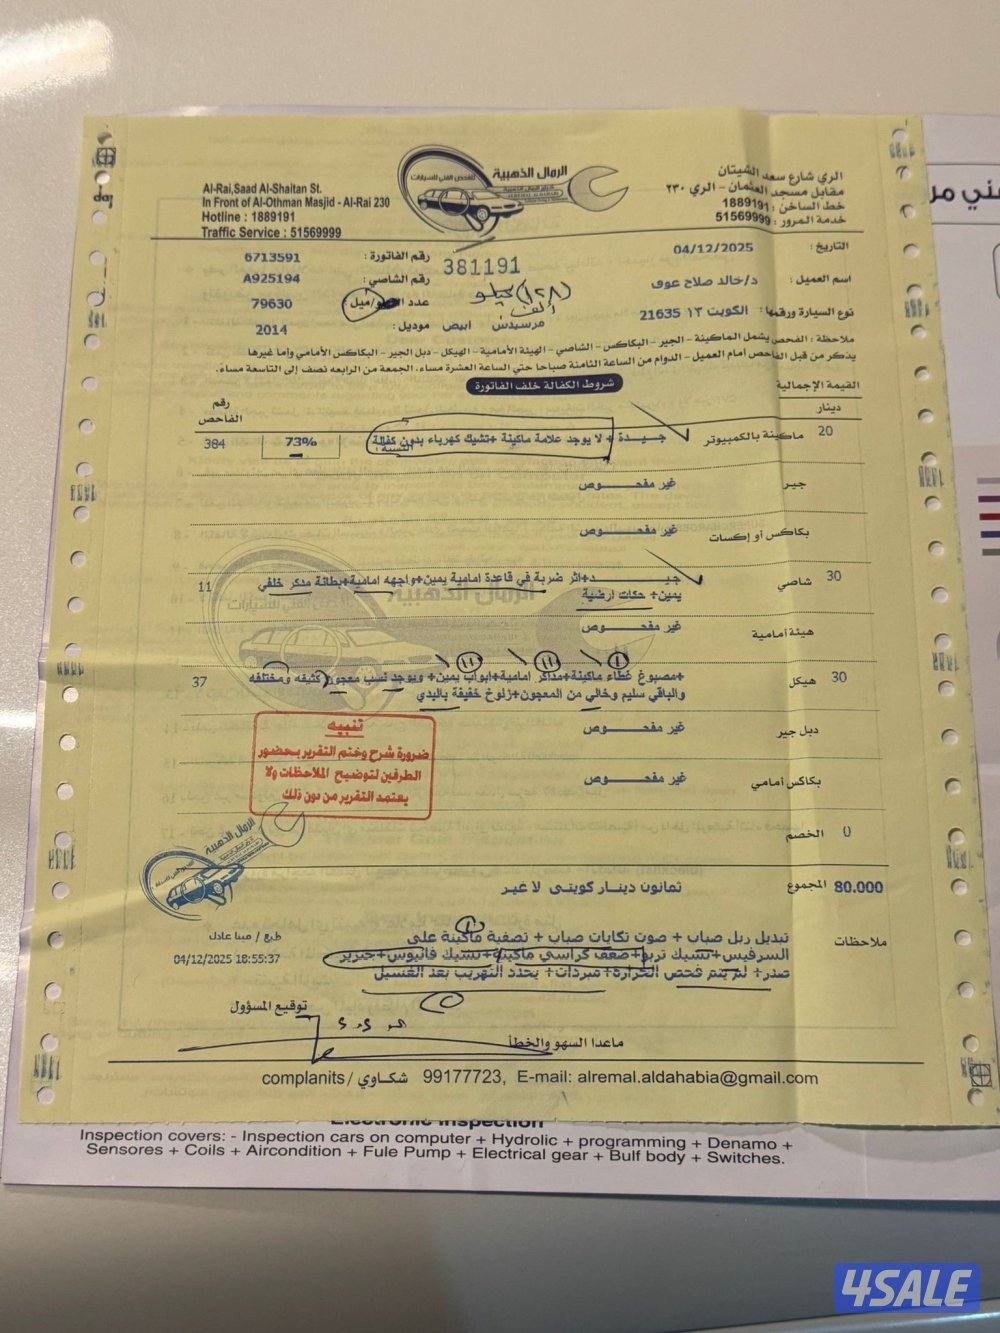 الرمال الذهبية
للفحص الفني للسيارات
Al-Rai,Saad Al-Shaitan St.
In Front of Al-Othman Masjid - Al-Rai 230
Hotline : 1889191
Traffic Service : 51569999
الري شارع سعد الشيتان
مقابل مسجد العثمان - الري ٢٣٠
خط الساخن : 1889191
خدمة المرور : 51569999
التاريخ : 04/12/2025
رقم الفاتورة : 6713591
381191
اسم العميل : د/خالد صلاح عوف
رقم الشاصي : A925194
(١٢٨) كيلو
الف
نوع السيارة ورقمها : الكويت ١٣ 21635
مرسيدس ابيض
عدد /ميل : 79630
موديل : 2014
ملاحظة : الفحص يشمل الماكينة - الجير - البكاكس - الشاصي - الهيئة الأمامية - الهيكل - دبل الجير - البكاكس الأمامي وأما غيرها
يذكر من قبل الفاحص أمام العميل - الدوام من الساعة الثامنة صباحا حتي الساعة العشرة مساء. الجمعة من الرابعه نصف إلى التاسعة مساء.
شروط الكفالة خلف الفاتورة
القيمة الإجمالية
دينار
رقم الفاحص
20 ماكينة بالكمبيوتر جيـدة + لا يوجد علامة ماكينة +تشيك كهرباء بدون كفالة النسبة : 73% 384
جير غير مفحـــوص
بكاكس أو إكسات غير مفحـــوص
30 شاصي جيـــد+اثر ضربة في قاعدة امامية يمين+واجهه امامية+بطانة مدكر خلفي 11
يمين+ حكات ارضية
هيئة أمامية غير مفحـــوص
30 هيكل +مصبوغ غطاء ماكينة+مداكر امامية+ابواب يمين+ ويوجد نسب معجون كثيفه ومختلفه 37
والباقي سليم وخالي من المعجون+زلوخ خفيفة بالبدي
دبل جير غير مفحـــوص
بكاكس أمامي غير مفحـــوص
تنبيه
ضرورة شرح وختم التقرير بحضور
الطرفين لتوضيح الملاحظات ولا
يعتمد التقرير من دون ذلك
0 الخصم
80.000 المجموع ثمانون دينار كويتى لا غير
ملاحظات
تبديل ربل صباب + صوت تكايات صباب + تصفية ماكينة على
السرفيس+تشيك تربو+ضعف كراسي ماكينة+تشيك فانيوس+جنزير
صدر+ لم يتم فحص الحرارة+مبردات+ يحدد التهريب بعد الغسيل
طبع / مينا عادل
04/12/2025 18:55:37
توقيع المسؤول
ماعدا السهو والخطأ
complanits / شكاوي 99177723, E-mail: alremal.aldahabia@gmail.com
Electronic Inspection
Inspection covers: - Inspection cars on computer + Hydrolic + programming + Denamo +
Sensores + Coils + Aircondition + Fule Pump + Electrical gear + Bulf body + Switches.
4SALE